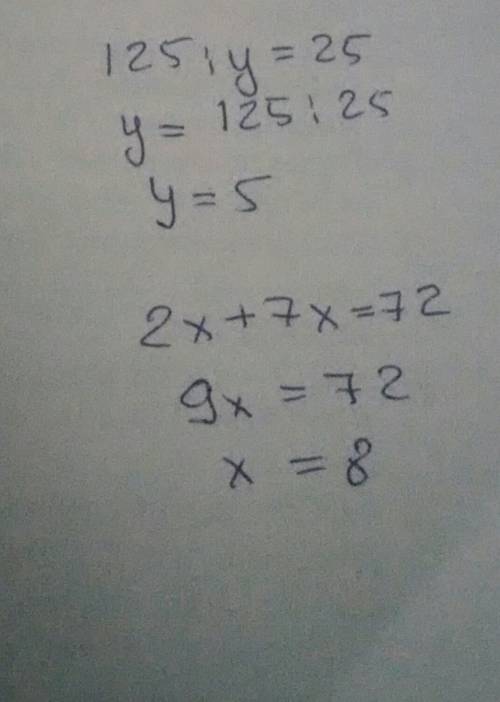 125 : y = 25
y = 125 : 25
y = 5
2x + 7x = 72
9x = 72
x = 8